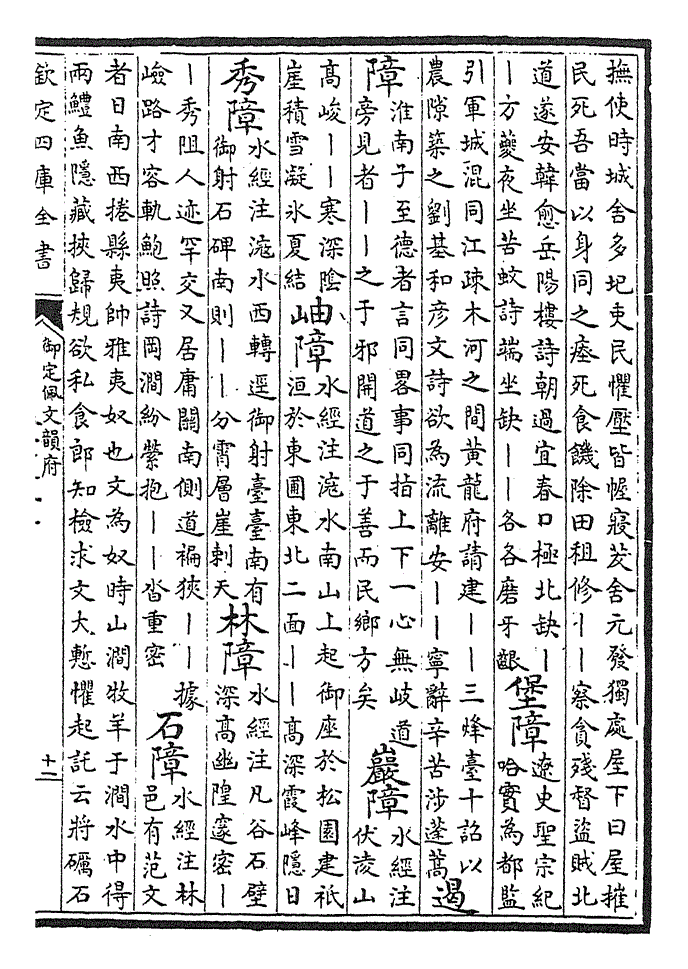 撫使時城舍多圮吏民懼壓皆幄寢茇舍元發獨處屋下曰屋摧
民死吾當以身同之瘞死食饑除田租修丨丨察貪殘督盜賊北
道遂安韓愈岳陽樓詩朝過宜春口極北缺丨
丨方夔夜坐苦蚊詩端坐缺丨丨各各磨牙齦
堡障
遼史聖宗紀
哈實為都監
引軍城混同江疎木河之間黃龍府請建丨丨三烽臺十詔以
農隙築之劉基和彦文詩欲為流離安丨丨寧辭辛苦涉蓬蒿
遏
障
淮南子至德者言同畧事同指上下一心無岐道
旁見者丨丨之于邪開道之于善而民鄉方矣
巖障
水經注
伏淩山
高峻丨丨寒深陰
崖積雪凝氷夏結
岫障
水經注㶟水南山上起御座於松園建祇
洹於東圃東北二面丨丨高深霞峰隱日
秀障
水經注㶟水西轉逕御射臺臺南有
御射石碑南則丨丨分霄層崖刺天
林障
水經注凡谷石壁
深高幽隍邃密丨
丨秀阻人迹罕交又居庸關南側道褊狹丨丨據
嶮路才容軌鮑照詩岡澗紛縈抱丨丨沓重密
石障
水經注林
邑有范文
者日南西捲縣夷帥雅夷奴也文為奴時山澗牧羊于澗水中得
兩鱧魚隱藏挾歸規欲私食郎知檢求文大慙懼起託云將礪石
欽定四庫全書
御定佩文韻府
十二